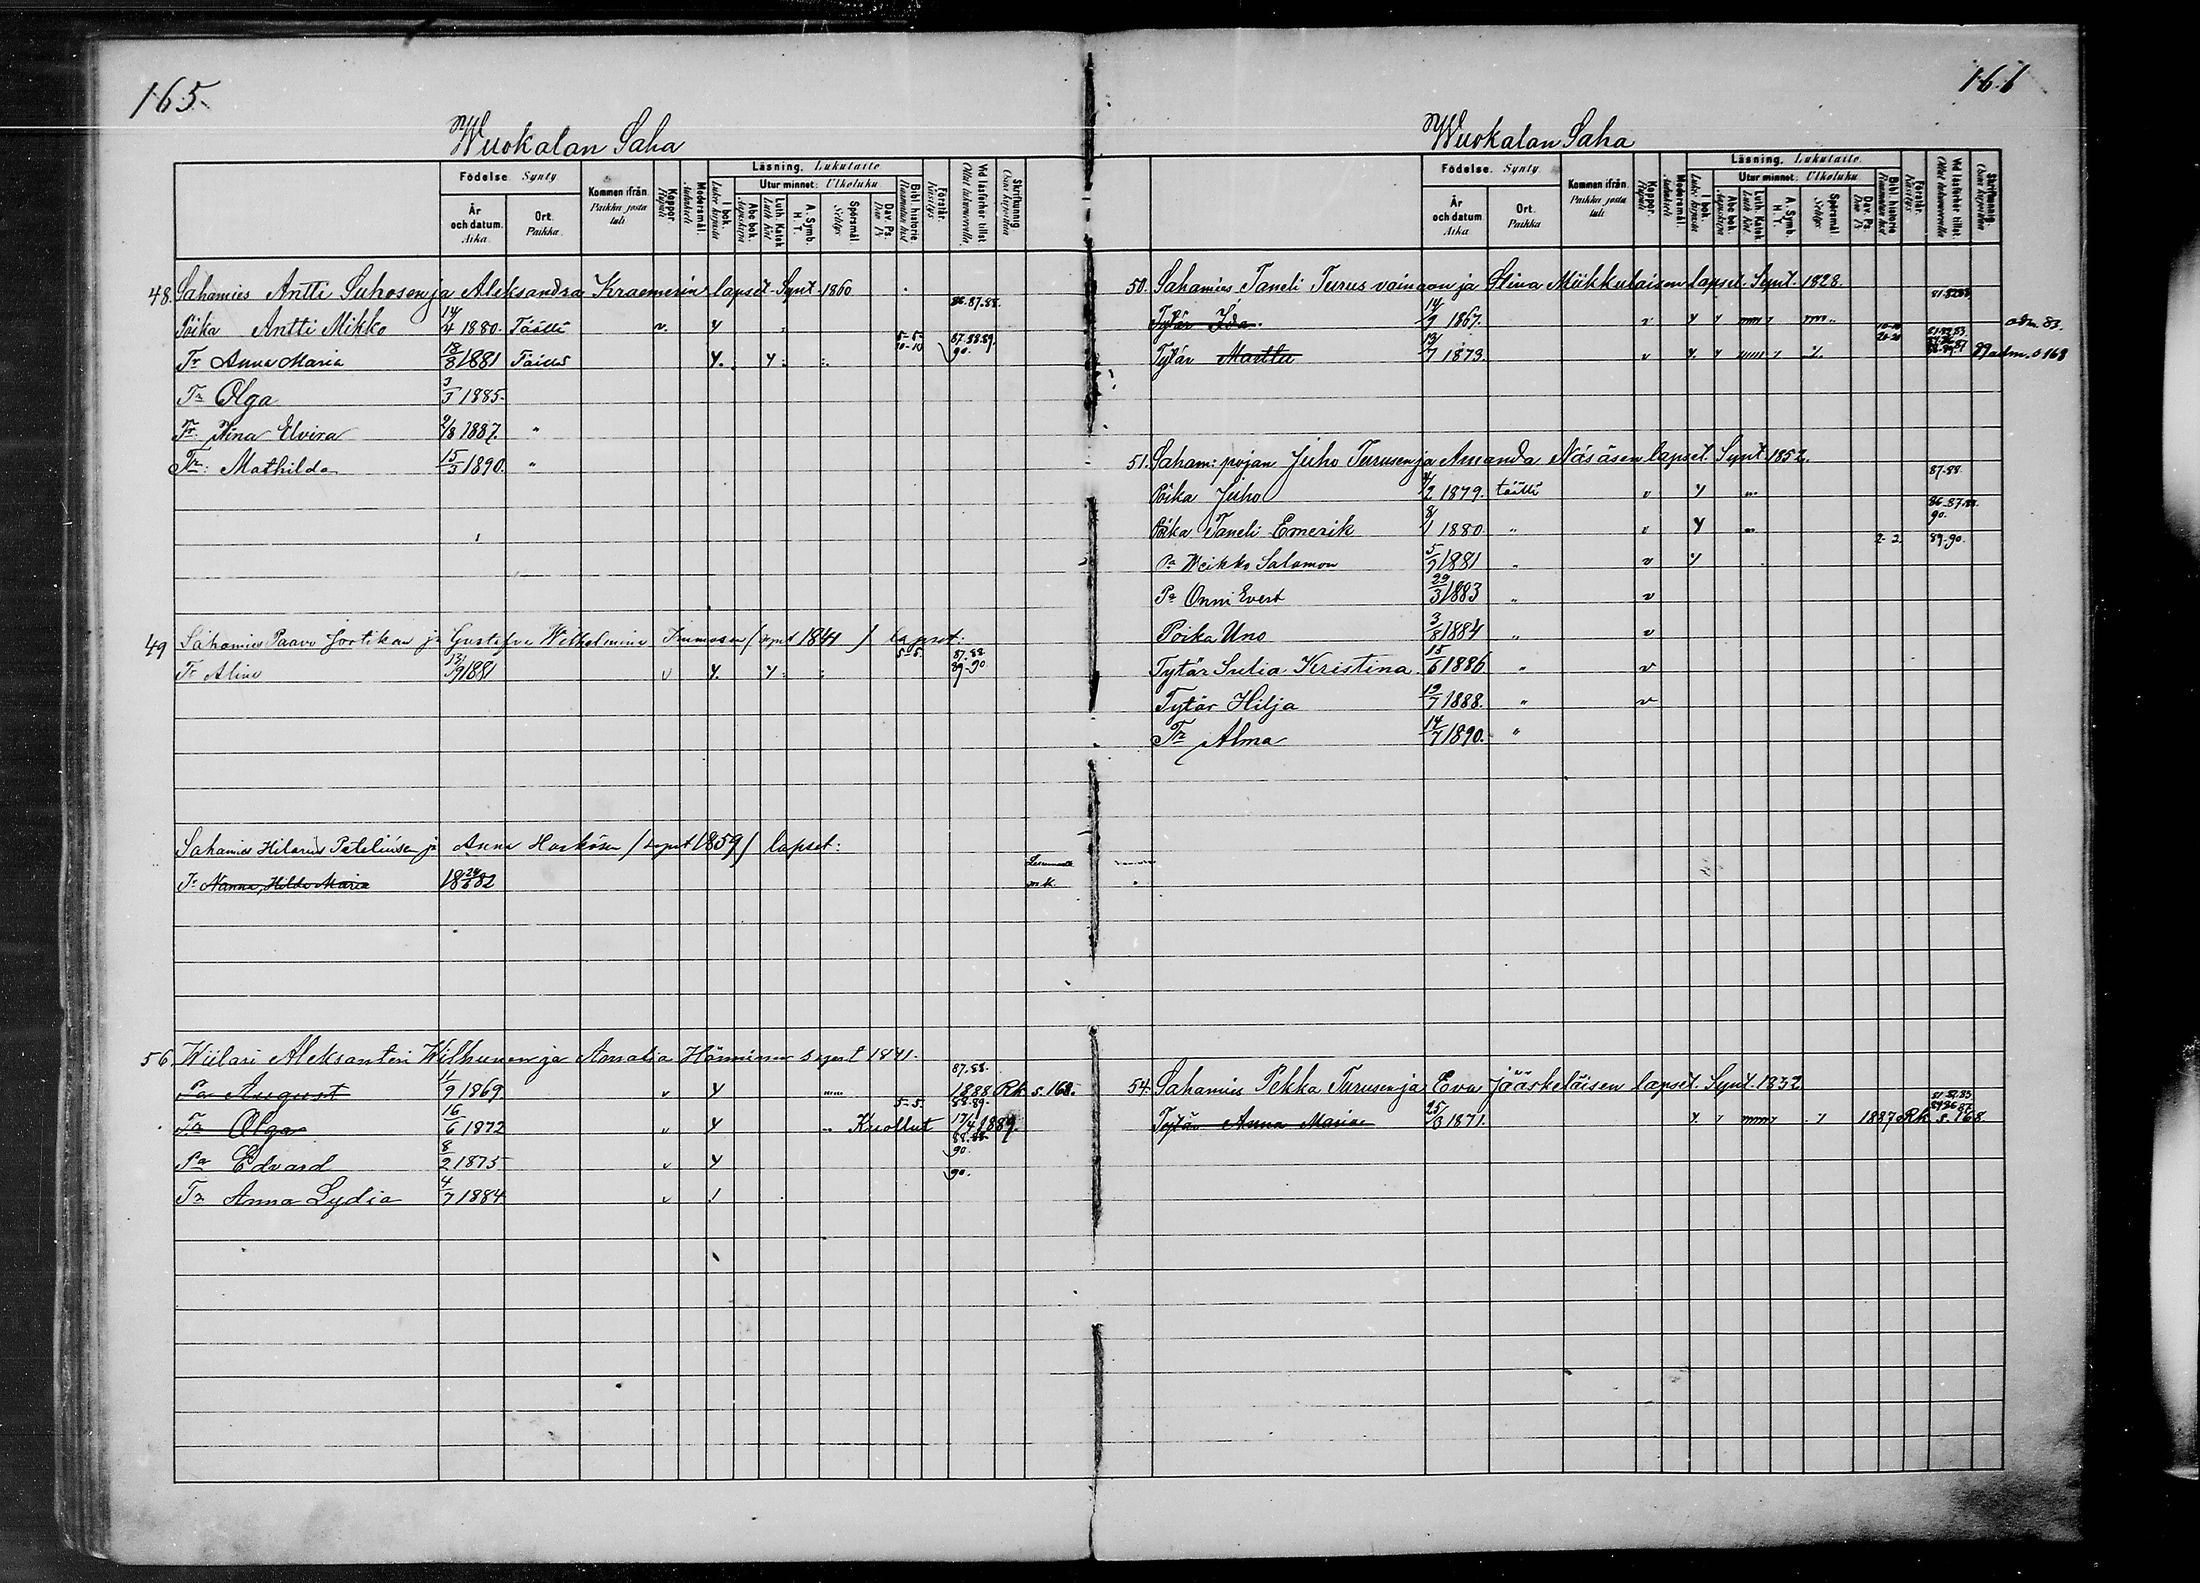 165.
Wuokalan Saha
Födelse. Synty
År och datum. Aika.
Ort. Paikka.
Kommen ifrån. Paikka, josta tuli.
Koppor. Rupuli
Modersmål.
Läsning. Lukutaito
I bok.
Utur minnet: Ulkoluku
Abc bok.
Luth. Katek
A. Symb. H. T.
Spörsmål.
Dav. Ps.
Bibl. historie
Förstår. Käsitys
Vid läsförhör tillst.
Skriftkunnig.
48. Sahamies Antti Suhosen ja Aleksandra Kraemerin lapset. Synt. 1860
Poika Antti Mikko 14/4 1880. Täällä v. 86.87.88.
Tr Anna Maria 18/8 1881 Täällä 5-5 10-10 87.88.89. 90.
Tr Olga 3/3 1885.
Tr. Nina Elvira 9/8 1887. "
Tr: Mathilda 15/5 1890. "
49 Sahamies Paavo Jortikan ja Gustafva Wilhelmina Immosen (synt 1841) lapset:
Tr Alina 13/9 1881 v 5-5. 87.88 89-90
Sahamies Hilarius Peteliusen ja Anna Harkösen (synt 1859) lapset:
Tr Nanna, Hilda Maria 1882
56. Wiilari Aleksanteri Wilhunen ja Amalia Hänninen synt 1841.
Pa August 11/9 1869 v 87.88. 1888 Rk s. 168.
Tr Olga 16/6 1872 v Kuollut 5-5. 88.89- 17/4 1889.
Pa Edvard 8/2 1875 v 88.88- 90.
Tr Anna Lydia 4/7 1884 v 90.
166
Wuokalan Saha
Födelse. Synty.
År och datum Aika
Ort. Paikka
Kommen ifrån. Paikka, josta tuli.
Koppor. Rupuli
Modersmål.
Läsning. Lukutaito.
I bok.
Utur minnet: Ulkoluku.
Abc bok.
Luth. Katek
A. Symb. H. T.
Spörsmål.
Dav. Ps.
Bibl. historie
Förstår. Käsitys
Vid läsförhör tillst.
Skriftkunnig.
50. Sahamies Taneli Turus vainaan ja Stina Miikkulaisen lapset. Synt. 1828.
Tytär Ida. 14/9 1867. v 81.82.83 adm. 83.
Tytär Martta 13/7 1873. v 89 adm. s 168
51. Saham: pojan Juho Turusen ja Amanda Näsäsen lapset. Synt. 1852.
Poika Juho 4/2 1879. täällä v 87.88.
Poika Taneli Emerik 8/1 1880. " v 86.87.88. 90.
Pa Weikko Salamon 5/7 1881 " v 2-2 89-90.
Pa Onni Evert 29/3 1883 " v
Poika Uno 3/8 1884 " v
Tytär Sulia Kristina. 15/6 1886 " v
Tytär Hilja 19/7 1888. " v
Tr Alma 14/7 1890. "
54. Sahamies Pekka Turusen ja Eva Jääskeläisen lapset. Synt. 1832
Tytär Anna Maria 25/3 1871. 81.82.83 1887 Rk s. 168.